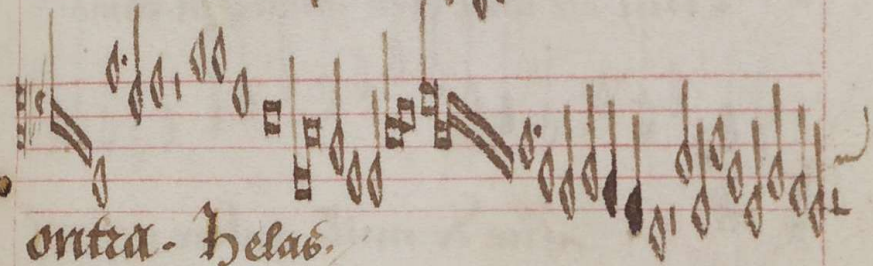 ontra. helas.